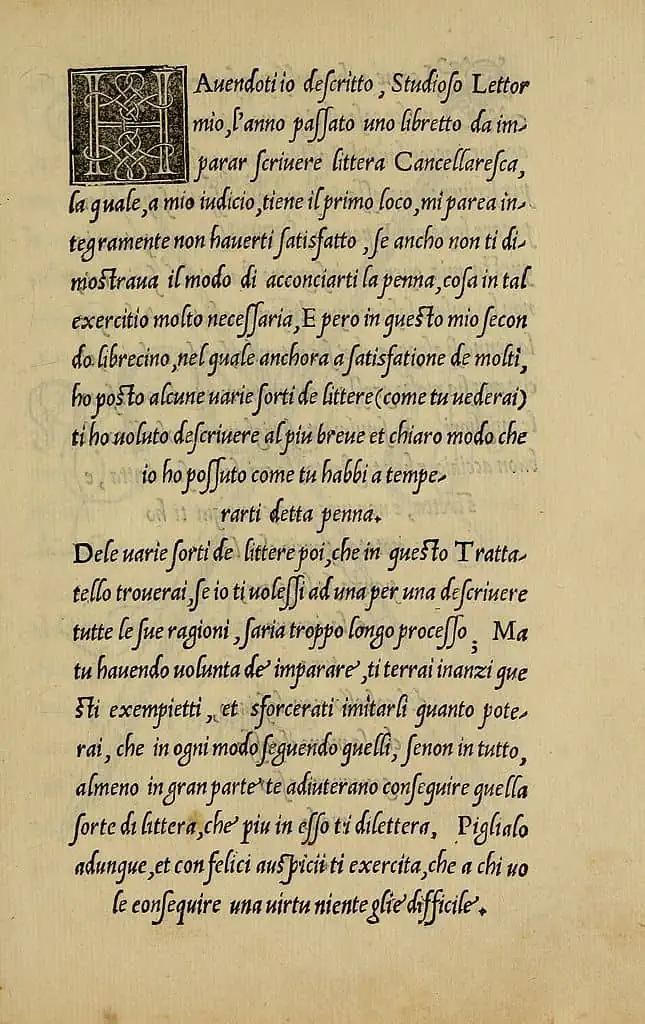 HAuendoti io deſcritto, Studioſo Lettor
mio, l'anno paſſato uno libretto da im-
parar ſcriuere littera Cancellareſca,
la quale, a mio iudicio, tiene il primo loco, mi parea in-
tegramente non hauerti ſatisfatto, ſe ancho non ti di-
moſtraua il modo di acconciarti la penna, coſa in tal
exercitio molto neceſſaria, E pero in queſto mio ſecon
do librecino, nel quale anchora a ſatisfatione de molti,
ho poſto alcune uarie ſorti de littere (come tu uederai)
ti ho uoluto deſcriuere al piu breue et chiaro modo che
io ho poſſuto come tu habbi a tempe-
rarti detta penna.
Dele uarie ſorti de littere poi, che in queſto Tratta-
tello trouerai, ſe io ti uoleſſi ad una per una deſcriuere
tutte le ſue ragioni, ſaria troppo longo proceſſo; Ma
tu hauendo uolunta de imparare, ti terrai inanzi que
ſti exempietti, et sforcerati imitarli quanto pote-
rai, che in ogni modo ſeguendo quelli, ſenon in tutto,
almeno in gran parte te adiuterano conſeguire quella
ſorte di littera, che piu in eſſo ti dilettera, Piglialo
adunque, et con felici auſpicii ti exercita, che a chi uo
le conſequire una uirtu niente glie difficile.